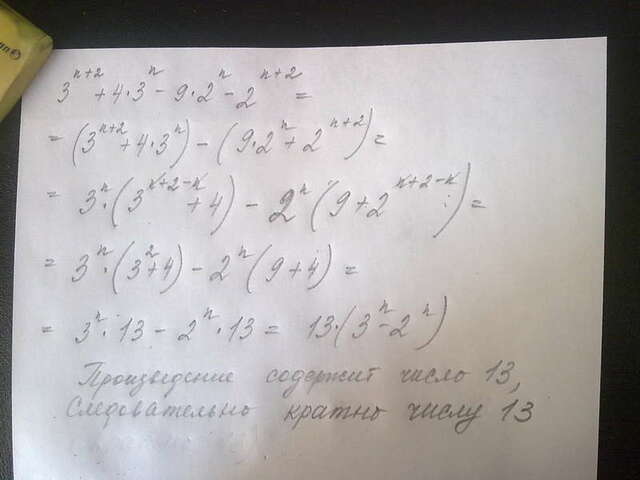 3^{n+2} + 4·3^n − 9·2^n − 2^{n+2} =
= (3^{n+2} + 4·3^n) − (9·2^n + 2^{n+2}) =
= 3^n·(3^{n+2−n} + 4) − 2^n (9 + 2^{n+2−n}) =
= 3^n·(3^2 + 4) − 2^n (9 + 4) =
= 3^n·13 − 2^n·13 = 13·(3^n − 2^n)
Произведение содержит число 13,
Следовательно кратно числу 13